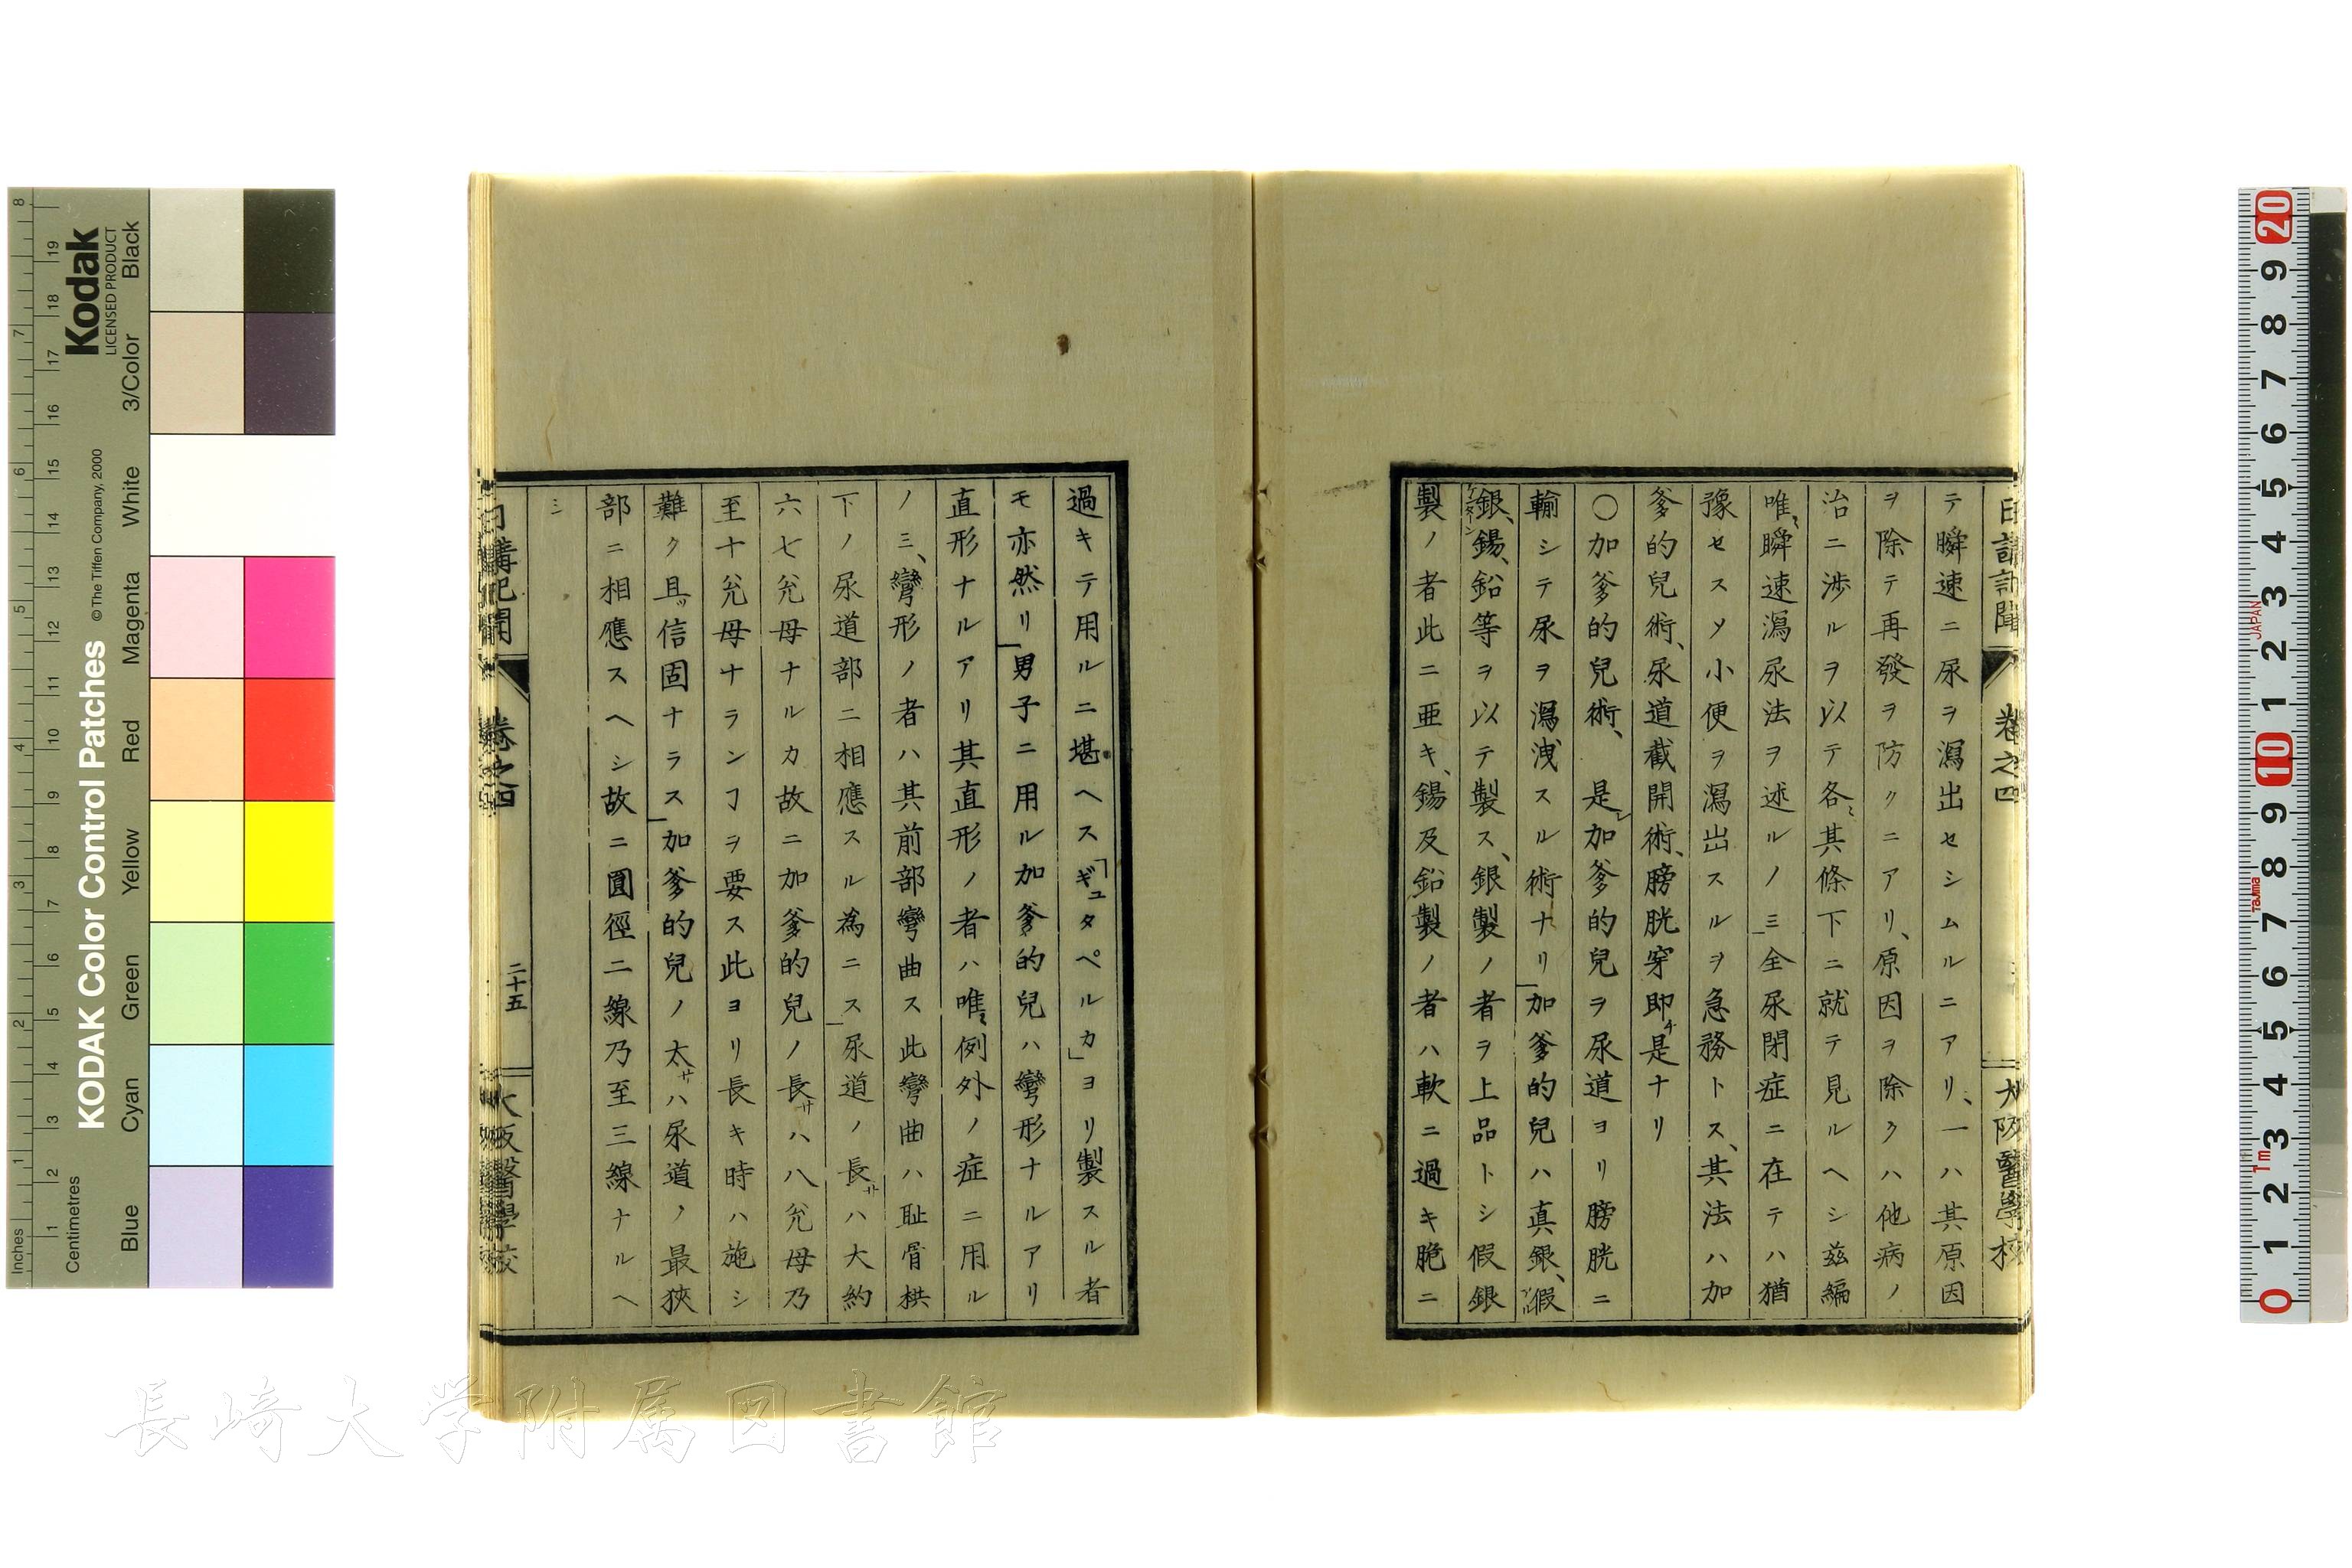 テ瞬速ニ尿ヲ瀉出セシムルニアリ、一ハ其原因
ヲ除テ再發ヲ防クニアリ、原因ヲ除クハ他病ノ
治ニ渉ルヲ以テ各其條下ニ就テ見ルヘシ茲編
唯瞬速瀉尿法ヲ述ルノミ全尿閉症ニ在テハ猶
豫セスソ小便ヲ瀉出スルヲ急務トス、其法ハ加
爹的兒術、尿道截開術、膀胱穿即チ是ナリ
〇加爹的兒術、 是レ加爹的兒ヲ尿道ヨリ膀胱ニ
輸シテ尿ヲ瀉洩スル術ナリ加爹的兒ハ真銀、假
銀、錫、鉛等ヲ以テ製ス、銀製ノ者ヲ上品トシ假銀
製ノ者此ニ亜キ、錫及鉛製ノ者ハ軟ニ過キ脆ニ
過キテ用ルニ堪ヘス「ギュタペルカ」ヨリ製スル者
モ亦然リ男子ニ用ル加爹的兒ハ彎形ナルアリ
直形ナルアリ其直形ノ者ハ唯例外ノ症ニ用ル
ノミ、彎形ノ者ハ其前部彎曲ス此彎曲ハ耻骨栱
下ノ尿道部ニ相應スル為ニス尿道ノ長サハ大約
六七兊母ナルカ故ニ加爹的兒ノ長サハ八兊母乃
至十兊母ナランヿヲ要ス此ヨリ長キ時ハ施シ
難ク且ツ信固ナラス加爹的兒ノ太サハ尿道ノ最狹
部ニ相應スヘシ故ニ圓徑二線乃至三線ナルヘ
シ
日講記聞 卷之四 大阪醫學校
日講記聞 卷之四 二十五 大阪醫學校
Kodak
LICENSED PRODUCT
KODAK Color Control Patches
©The Tiffen Company, 2000
Inches
Centimetres
Blue Cyan Green Yellow Red Magenta White 3/Color Black
JAPAN
Tajima
1m
長崎大学附属図書館